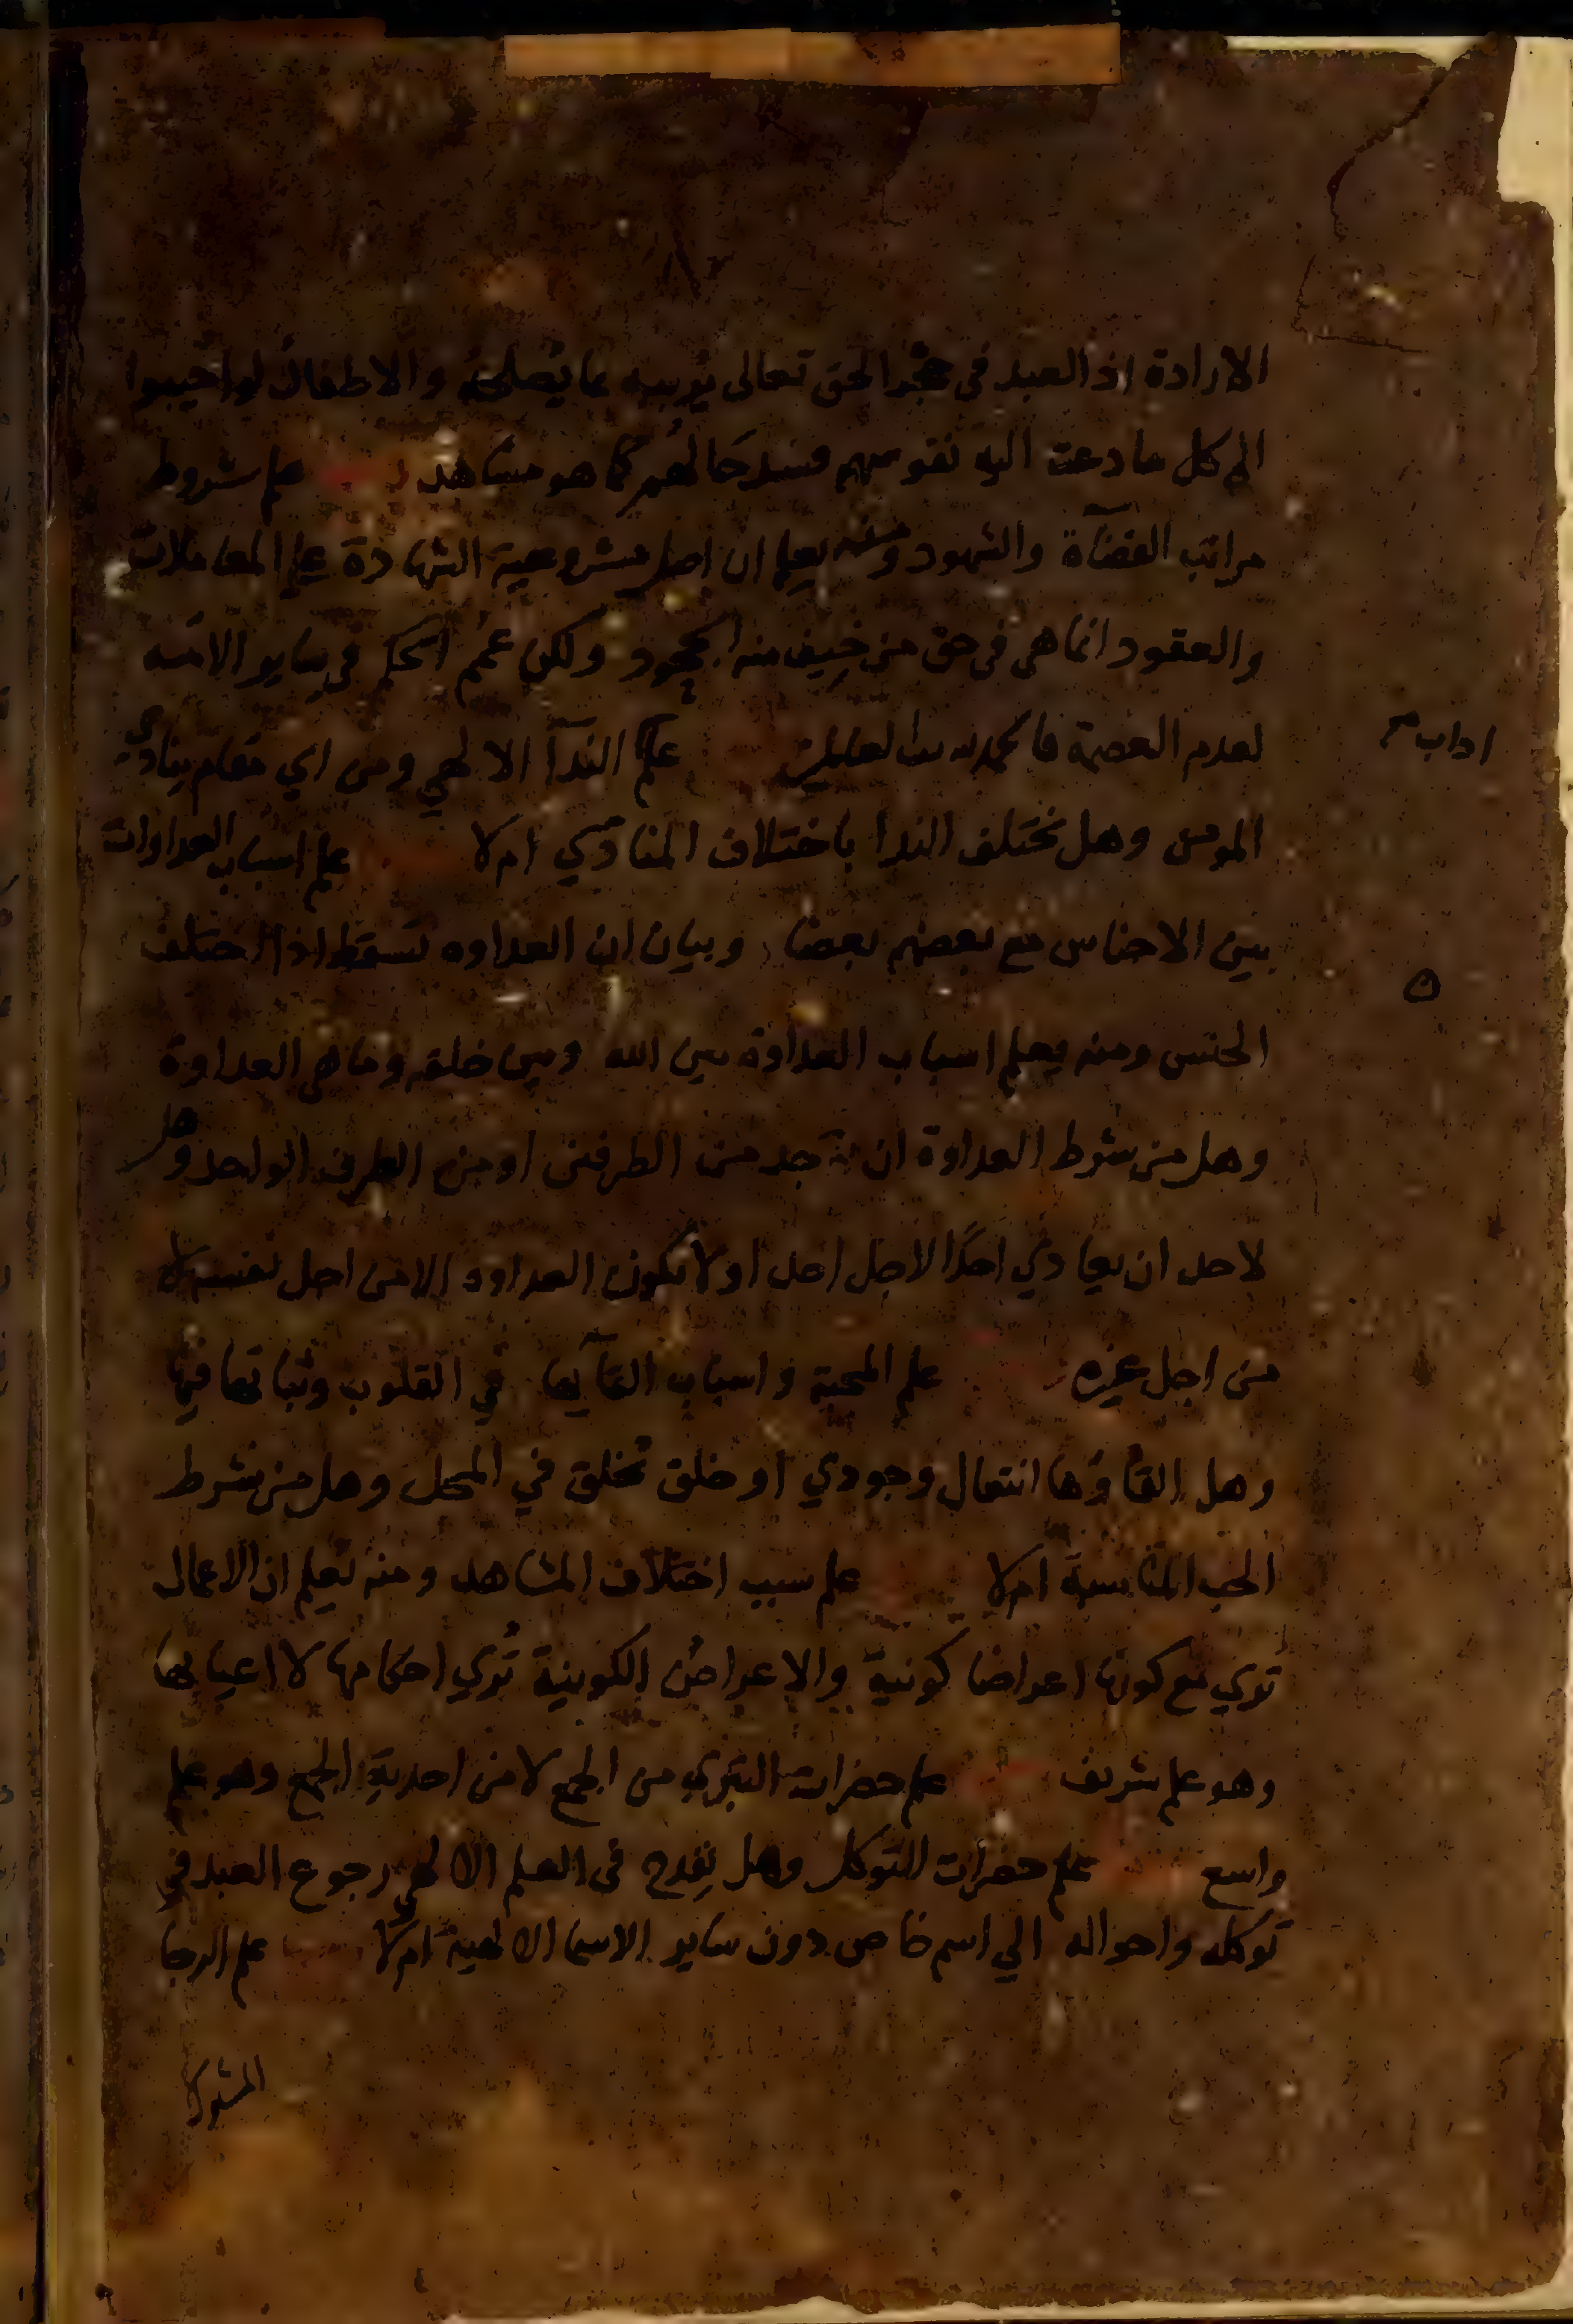 الارادة اذ العبد في حجر الحق تعالى يربيه بما يصلحه والاطفال لو اجيبوا
الى كل ما دعت اليه نفوسهم فسد حالهم كما هو مشاهد علم شروط
مراتب القضاة والشهود ومنه يعلم ان اصل مشروعية الشهادة على المعاملات
والعقود انما هي في حق من خيف منه الجحود ولكن عمم الحكم في ساير الامة
لعدم العصمة فالحمد لله رب العالمين علم الندآ الالهي ومن اي مقام ينادى
اداب
المومن وهل يختلف الندا باختلاف المنادي ام لا علم اسباب العداوات
بين الاجناس مع بعضهم بعضا وبيان ان العداوه تسقط اذا اختلف
الجنس ومنه يعلم اسباب العداوة بين الله وبين خلقه وما هي العداوة
وهل من شرط العداوة ان توجد من الطرفين او من الطرف الواحد وهل
لاحد ان يعادي احدًا لاجل احد او لا تكون العداوه الا من اجل نفسه لا
من اجل غيره علم المحبة واسباب القآيها في القلوب وثباتها فيها
وهل القاؤها انتقال وجودي او خلق تخلق في المحل وهل من شرط
الحب المناسبة ام لا علم سبب اختلاف المشاهد ومنه يعلم ان الاعمال
تري مع كونها اعراضا كونية والاعراض الكونية تُري احكامها لا اعيانها
وهو علم شريف علم حضرات التبري من الجمع لا من احدية الجمع وهو علم
واسع علم حضرات التوكل وهل يقدح في العلم الالهي رجوع العبد في
توكله واحواله الي اسم خاص دون ساير الاسما الالهية ام لا علم الرجا
المشترك